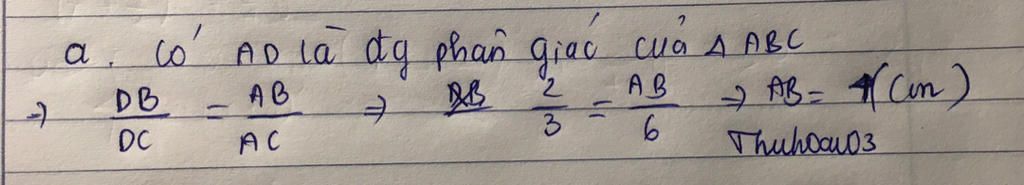 a. Có AD là đg phân giác của Δ ABC
⇒ DB/DC = AB/AC ⇒ 2/3 = AB/6 ⇒ AB = 4 (cm)
Thuhoau03